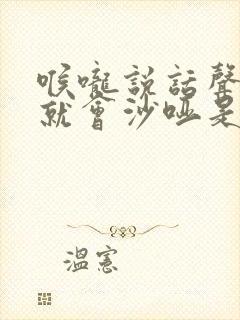 喉嚨說話聲
就會沙啞是
溫憲